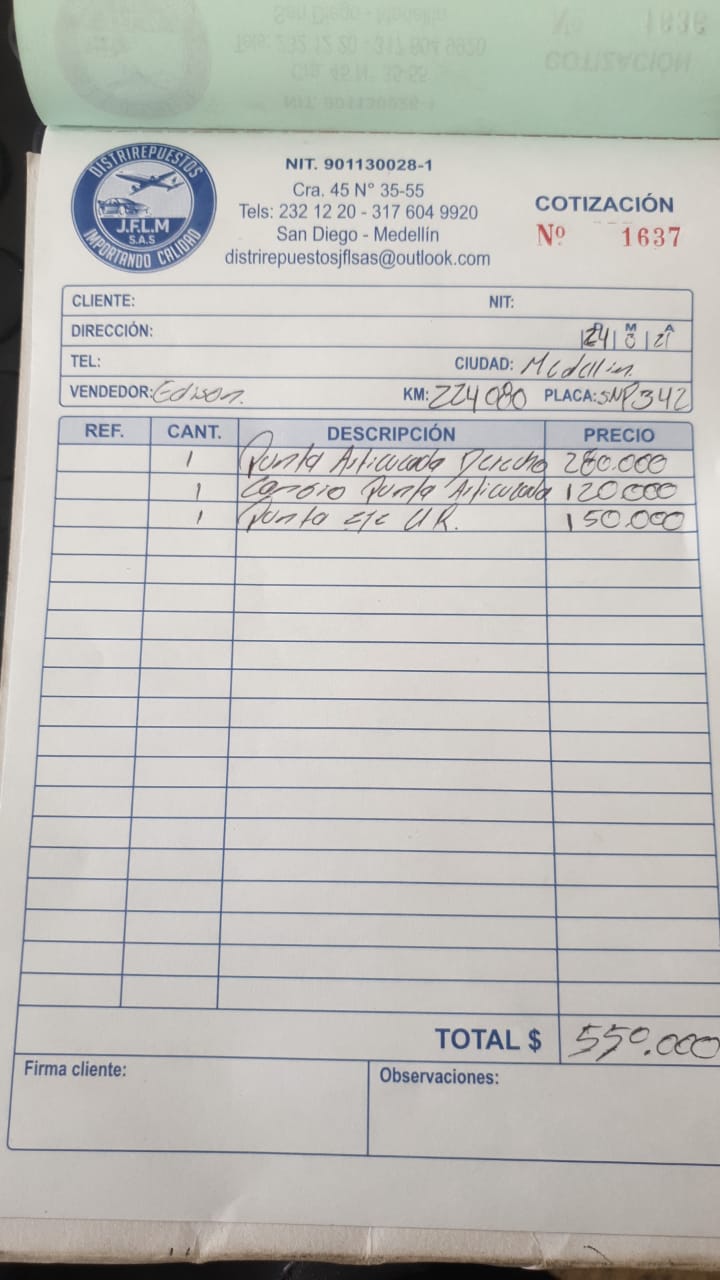 San Diego - Medellín
Tels: 232 12 20 - 317 604 9920
Cra. 45 N° 35-55
NIT. 901130028-1
Nº 1636
COTIZACIÓN
DISTRIREPUESTOS
J.F.L.M
S.A.S
IMPORTANDO CALIDAD
NIT. 901130028-1
Cra. 45 N° 35-55
Tels: 232 12 20 - 317 604 9920
San Diego - Medellín
distrirepuestosjflsas@outlook.com
COTIZACIÓN
Nº 1637
CLIENTE: NIT:
DIRECCIÓN: D M A
24 8 21
TEL: CIUDAD: Medellin
VENDEDOR: Edison. KM: 224080 PLACA: SNP342
REF. CANT. DESCRIPCIÓN PRECIO
1 Punta Articulada Derecho 280.000
1 Cambio Punta Articulada 120.000
1 Punta eje UR. 150.000
TOTAL $ 550.000
Firma cliente: Observaciones: